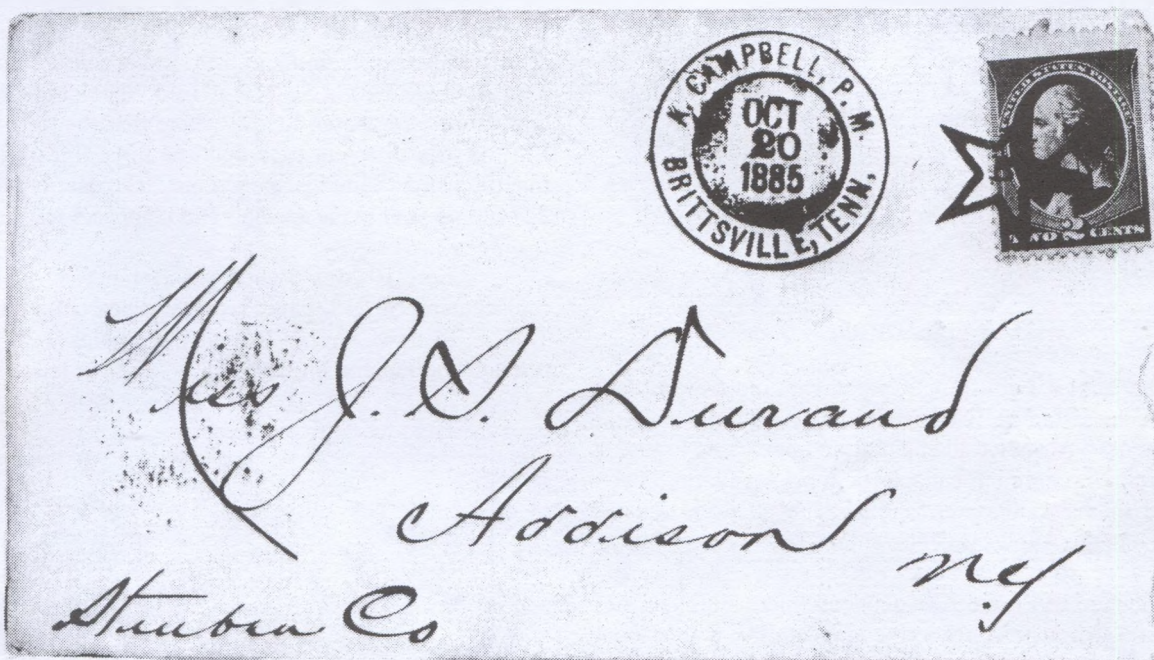 K. CAMPBELL, P. M.
OCT
20
1885
BRITTSVILLE, TENN.
UNITED STATES POSTAGE
TWO 2 CENTS
Miss J. S. Durand
Addison
N.Y
Steuben Co